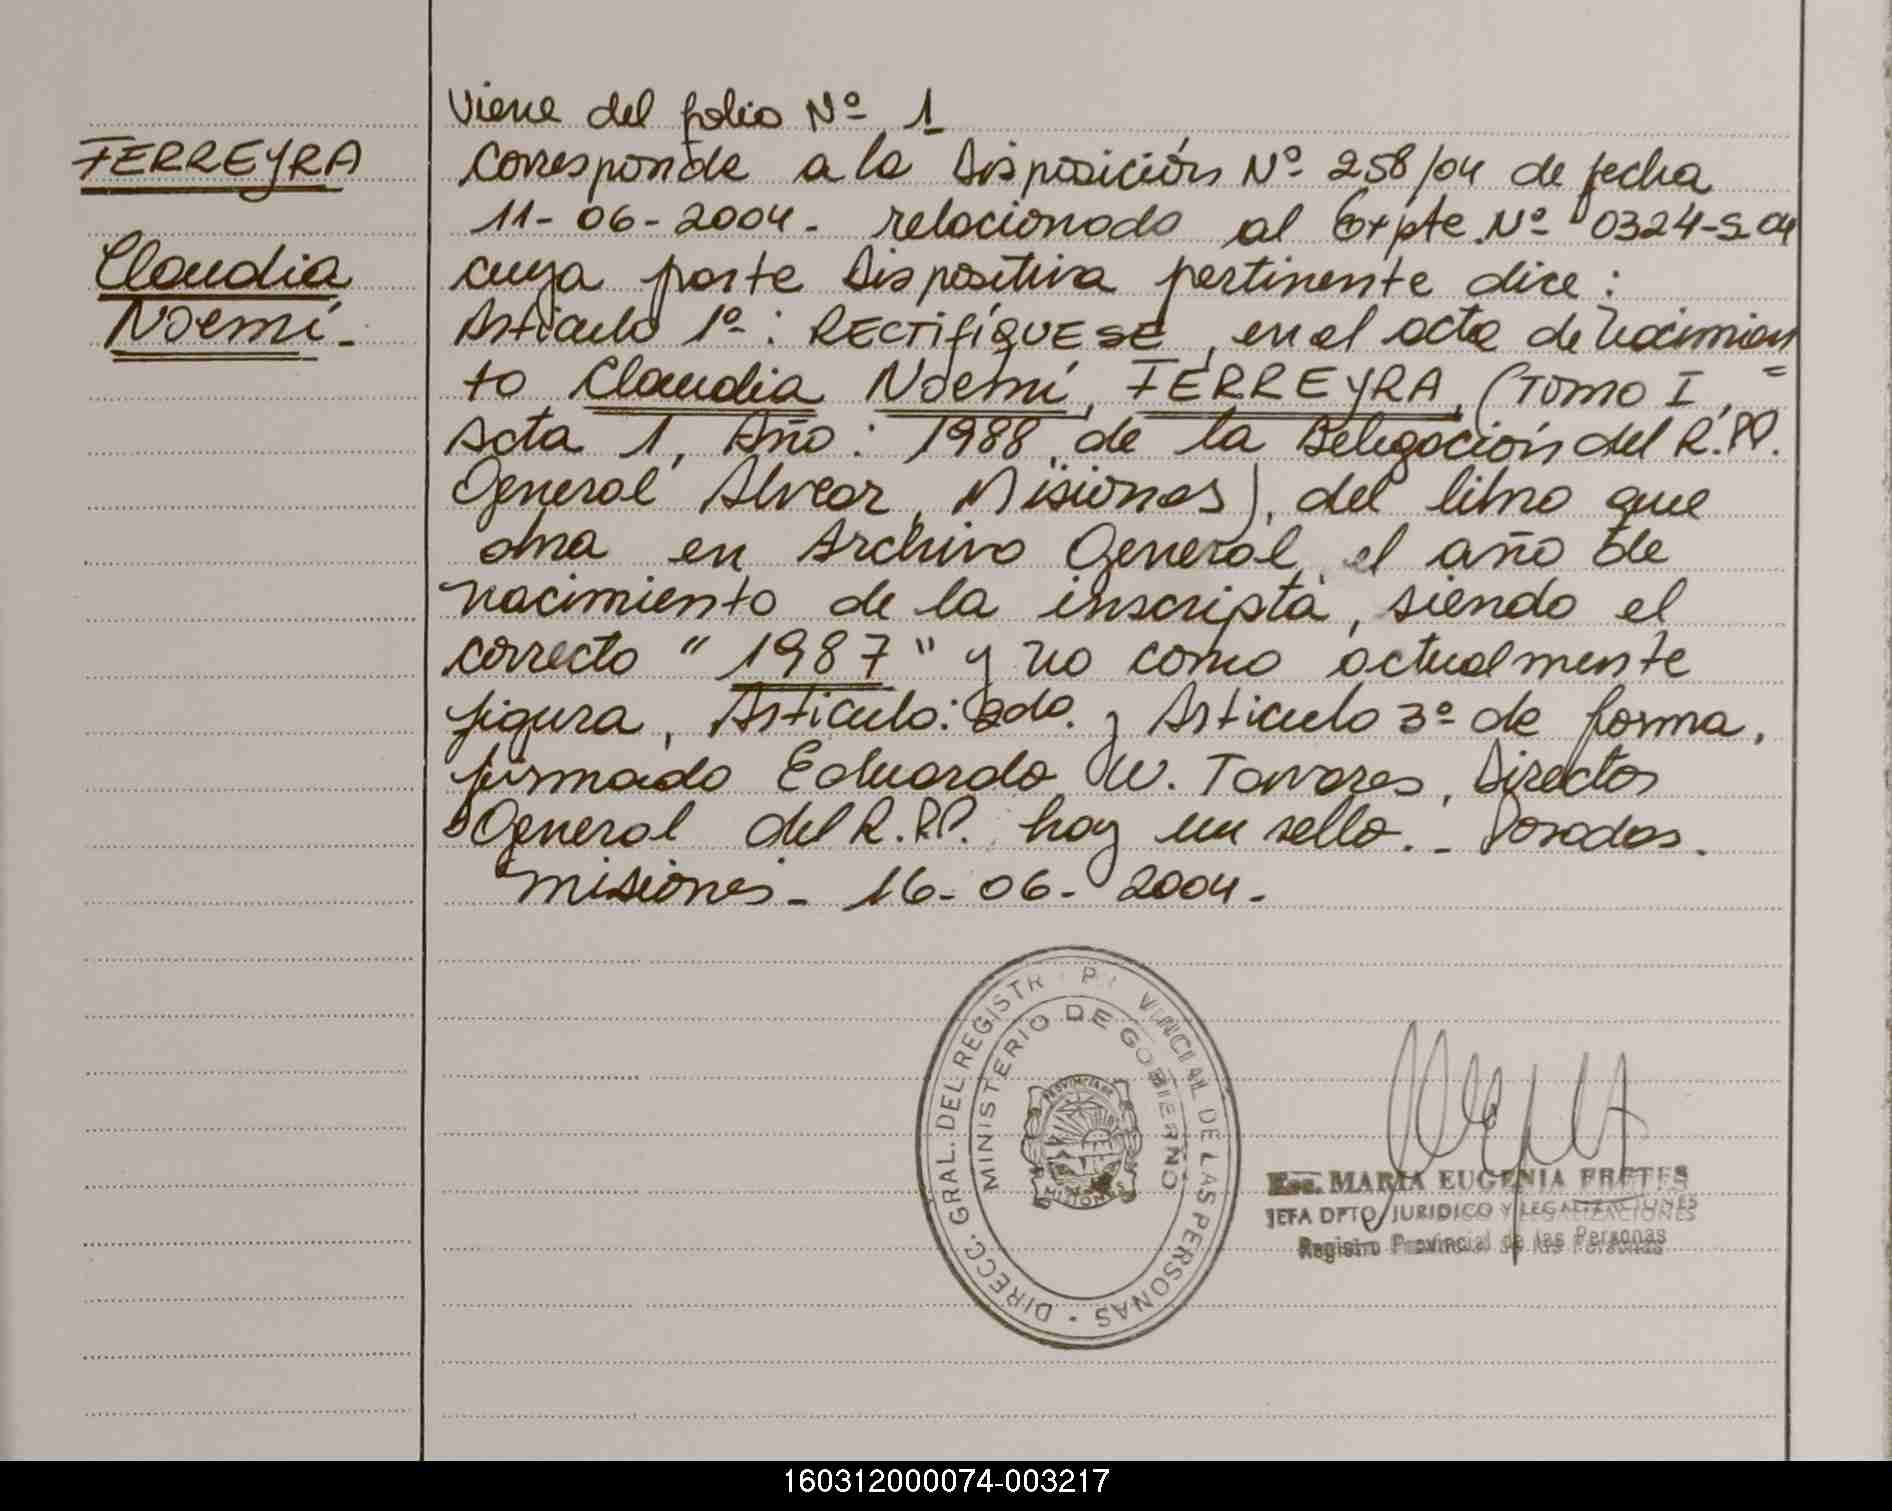 FERREYRA
Claudia
Noemí.-
Viene del folio Nº 1
Corresponde a la Disposición Nº 258/04 de fecha
11-06-2004- relacionado al Expte Nº 0324-S-04
cuya parte Dispositiva pertinente dice:
Artículo 1º: RECTIFÍQUESE, en el acta de nacimien
to Claudia Noemí, FERREYRA, (Tomo I, =
Acta 1, Año: 1988, de la Delegación del R.PP.
General Alvear, Misiones), del libro que
obra en Archivo General, el año de
nacimiento de la inscripta, siendo el
correcto "1987" y no como actualmente
figura, Artículo: 2do. y Artículo 3º de forma,
firmado Eduardo W. Tavares, Director
General del R.PP. hay un sello.- Posadas.
Misiones- 16-06-2004-
DIRECC. GRAL. DEL REGISTR PR VINCIAL DE LAS PERSONAS
MINISTERIO DE GOBIERNO
PROVINCIA DE
MISIONES
Esc. MARIA EUGENIA FRETES
JEFA DPTO JURIDICO Y LEGALIZACIONES
Registro Provincial de las Personas
160312000074-003217